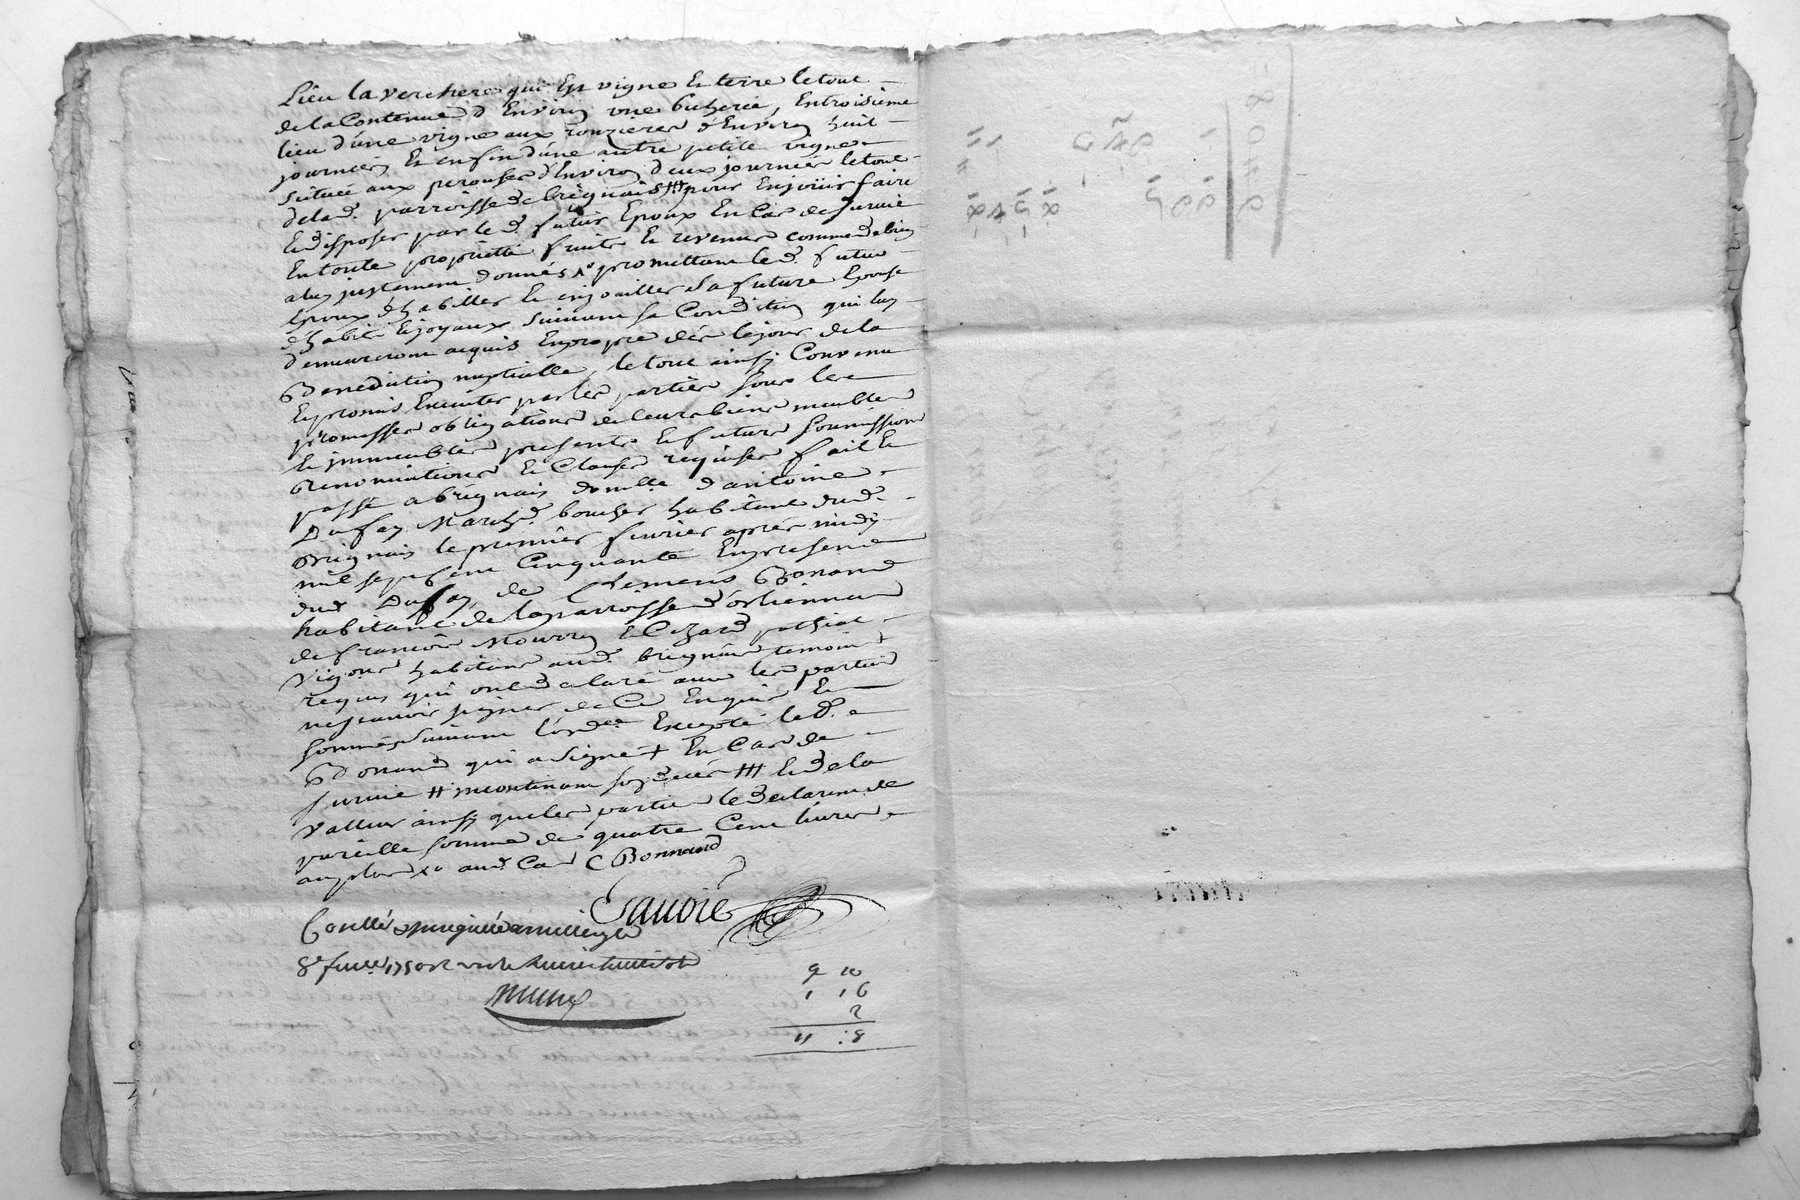 Lieu la verchere qui Est vigne Et terre le tout
de la Contenue d'Environ une bicherée, Entroisieme
lieu d'une vigne aux ronzieres d'Environ huit
journées Et enfin d'une autre petite vigne
située aux perouses d'Environ deux journées le tout
de lad. parroisse de brignais ## pour En joüir faire
Et disposer par led. futur Epoux En Cas de survie
En toute proprietté fruits Et revenus comme de bien
a luy justement donnés x° promettant led. futur
Epoux d'habiller Et enjoailler sa future Epouse
d'habits Et joyaux suivant sa Condition qui luy
demeureront acquis En propre dès le jour de la
Benediction nuptialle, le tout ainsy Convenu
Et promis Executer par les parties sous les
promesses obligations de leurs biens meubles
Et immeubles presents Et futurs soumissions
renonciations Et Clauses requises fait Et
passé a brignais domlle d'antoine
Dufay March. boucher habitant dud.
Brignais le premier fevrier après midy
mil sept Cent Cinquante En presence
dud Dufay de Clemens Bonnand
habitant de la parroisse d'orliennas
de francois Mourron Et Cezard pothiat
vigons habitans aud. brignais temoins
requis qui ont declaré avec les parties
ne scavoir signer de Ce Enquis Et
sommés suivant l'ordce Excepté led.
Bonnand qui a signé + En Cas de
survie # incontinant son decés ## Et de la
valleur ainsy que les parties le declarent de
pareille somme de quatre Cent livres
au plus x° aud Cas C Bonnand
Savoie
8e fever 1750
9 10
1 16
2
11 : 8